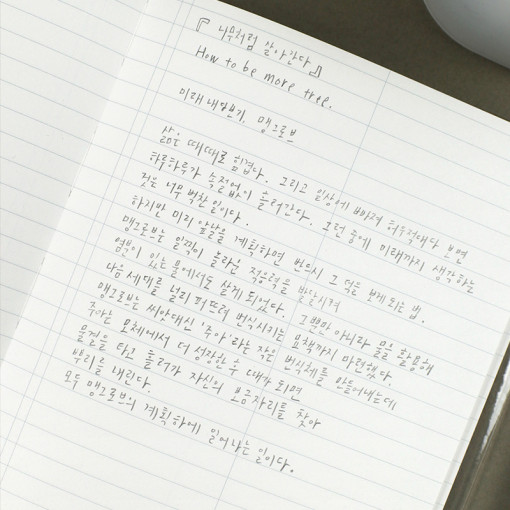 『나무처럼 살아간다』
How to be more tree.
미래 내다보기, 맹그로브
삶은 때때로 힘겹다. 그리고 일상에 빠져 허우적대다 보면
하루하루가 속절없이 흘러간다. 그런 중에 미래까지 생각하는
것은 너무 벅찬 일이다.
하지만 미리 앞날을 계획하면 반드시 그 덕을 보게 되는 법.
맹그로브는 일찍이 놀라운 적응력을 발달시켜
염분이 있는 물에서도 살게 되었다. 그뿐만 아니라 물을 활용해
다음 세대를 널리 퍼뜨려 번식시키는 묘책까지 마련했다.
맹그로브는 씨앗대신 '주아'라는 작은 번식체를 만들어내는데
주아는 모체에서 더 성장한 후 때가 되면
물결을 타고 흘러가 자신의 보금자리를 찾아
뿌리를 내린다
모두 맹그로브의 계획하에 일어나는 일이다.